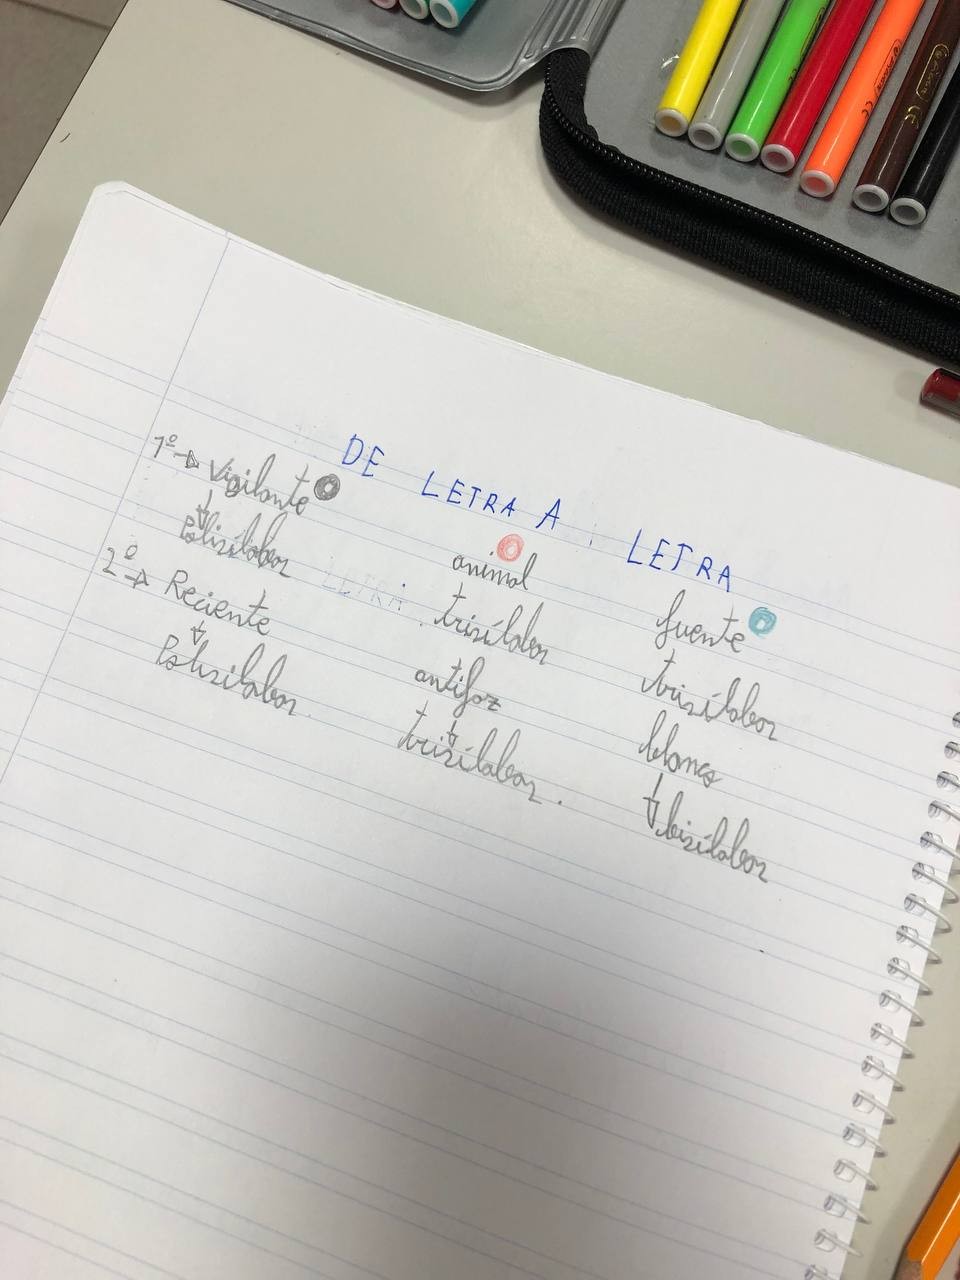 DE LETRA A LETRA
1º → Vigilante
Polisílabor
2º → Reciente
Polisilabor.
animal
trisílabor
antifaz
trisílabor.
fuente
trisílabor
blanco
bisílabor